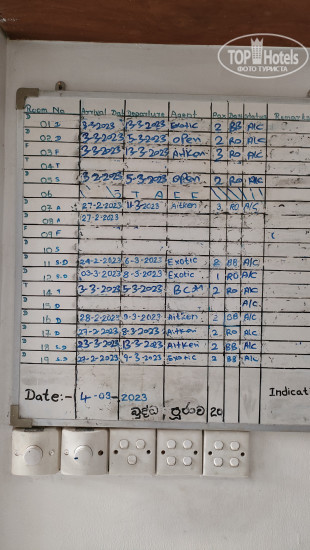 TOP Hotels
ФОТО ТУРИСТА
Room No Arrival Dat Departure Agent Pax Status Remarks
01 3-3-2023 13-3-2023 Exotic 2 BB A/C
02 D 3-3-2023 5-3-2023 Open 2 RO A/C
03 F 3-3-2023 13-3-2023 Aitken 3 RO A/C
04 T
05 S 3-2-2023 5-3-2023 Open 2 RO A/C
06 S T A F F
07 A 27-2-2023 11-3-2023 Aitken 3 RO A/C
08 A 27-2-2023
09 F
10 S
11 S.D 24-2-2023 6-3-2023 Exotic 2 BB A/C
12 S.D 03-3-2023 8-3-2023 Exotic 1 RO A/C
14 T 3-3-2023 5-3-2023 BCM 2 RO A/C
15 D A/C
16 D 28-2-2023 9-3-2023 Aitken 2 BB A/C
17 D 27-2-2023 8-3-2023 Aitken 2 RO A/C
18 S.D 13-3-2023 Aitken 2 BB A/C
19 S.D 9-3-2023 Exotic 2 BB A/C
Date:- 4-03-2023 Indicati
20